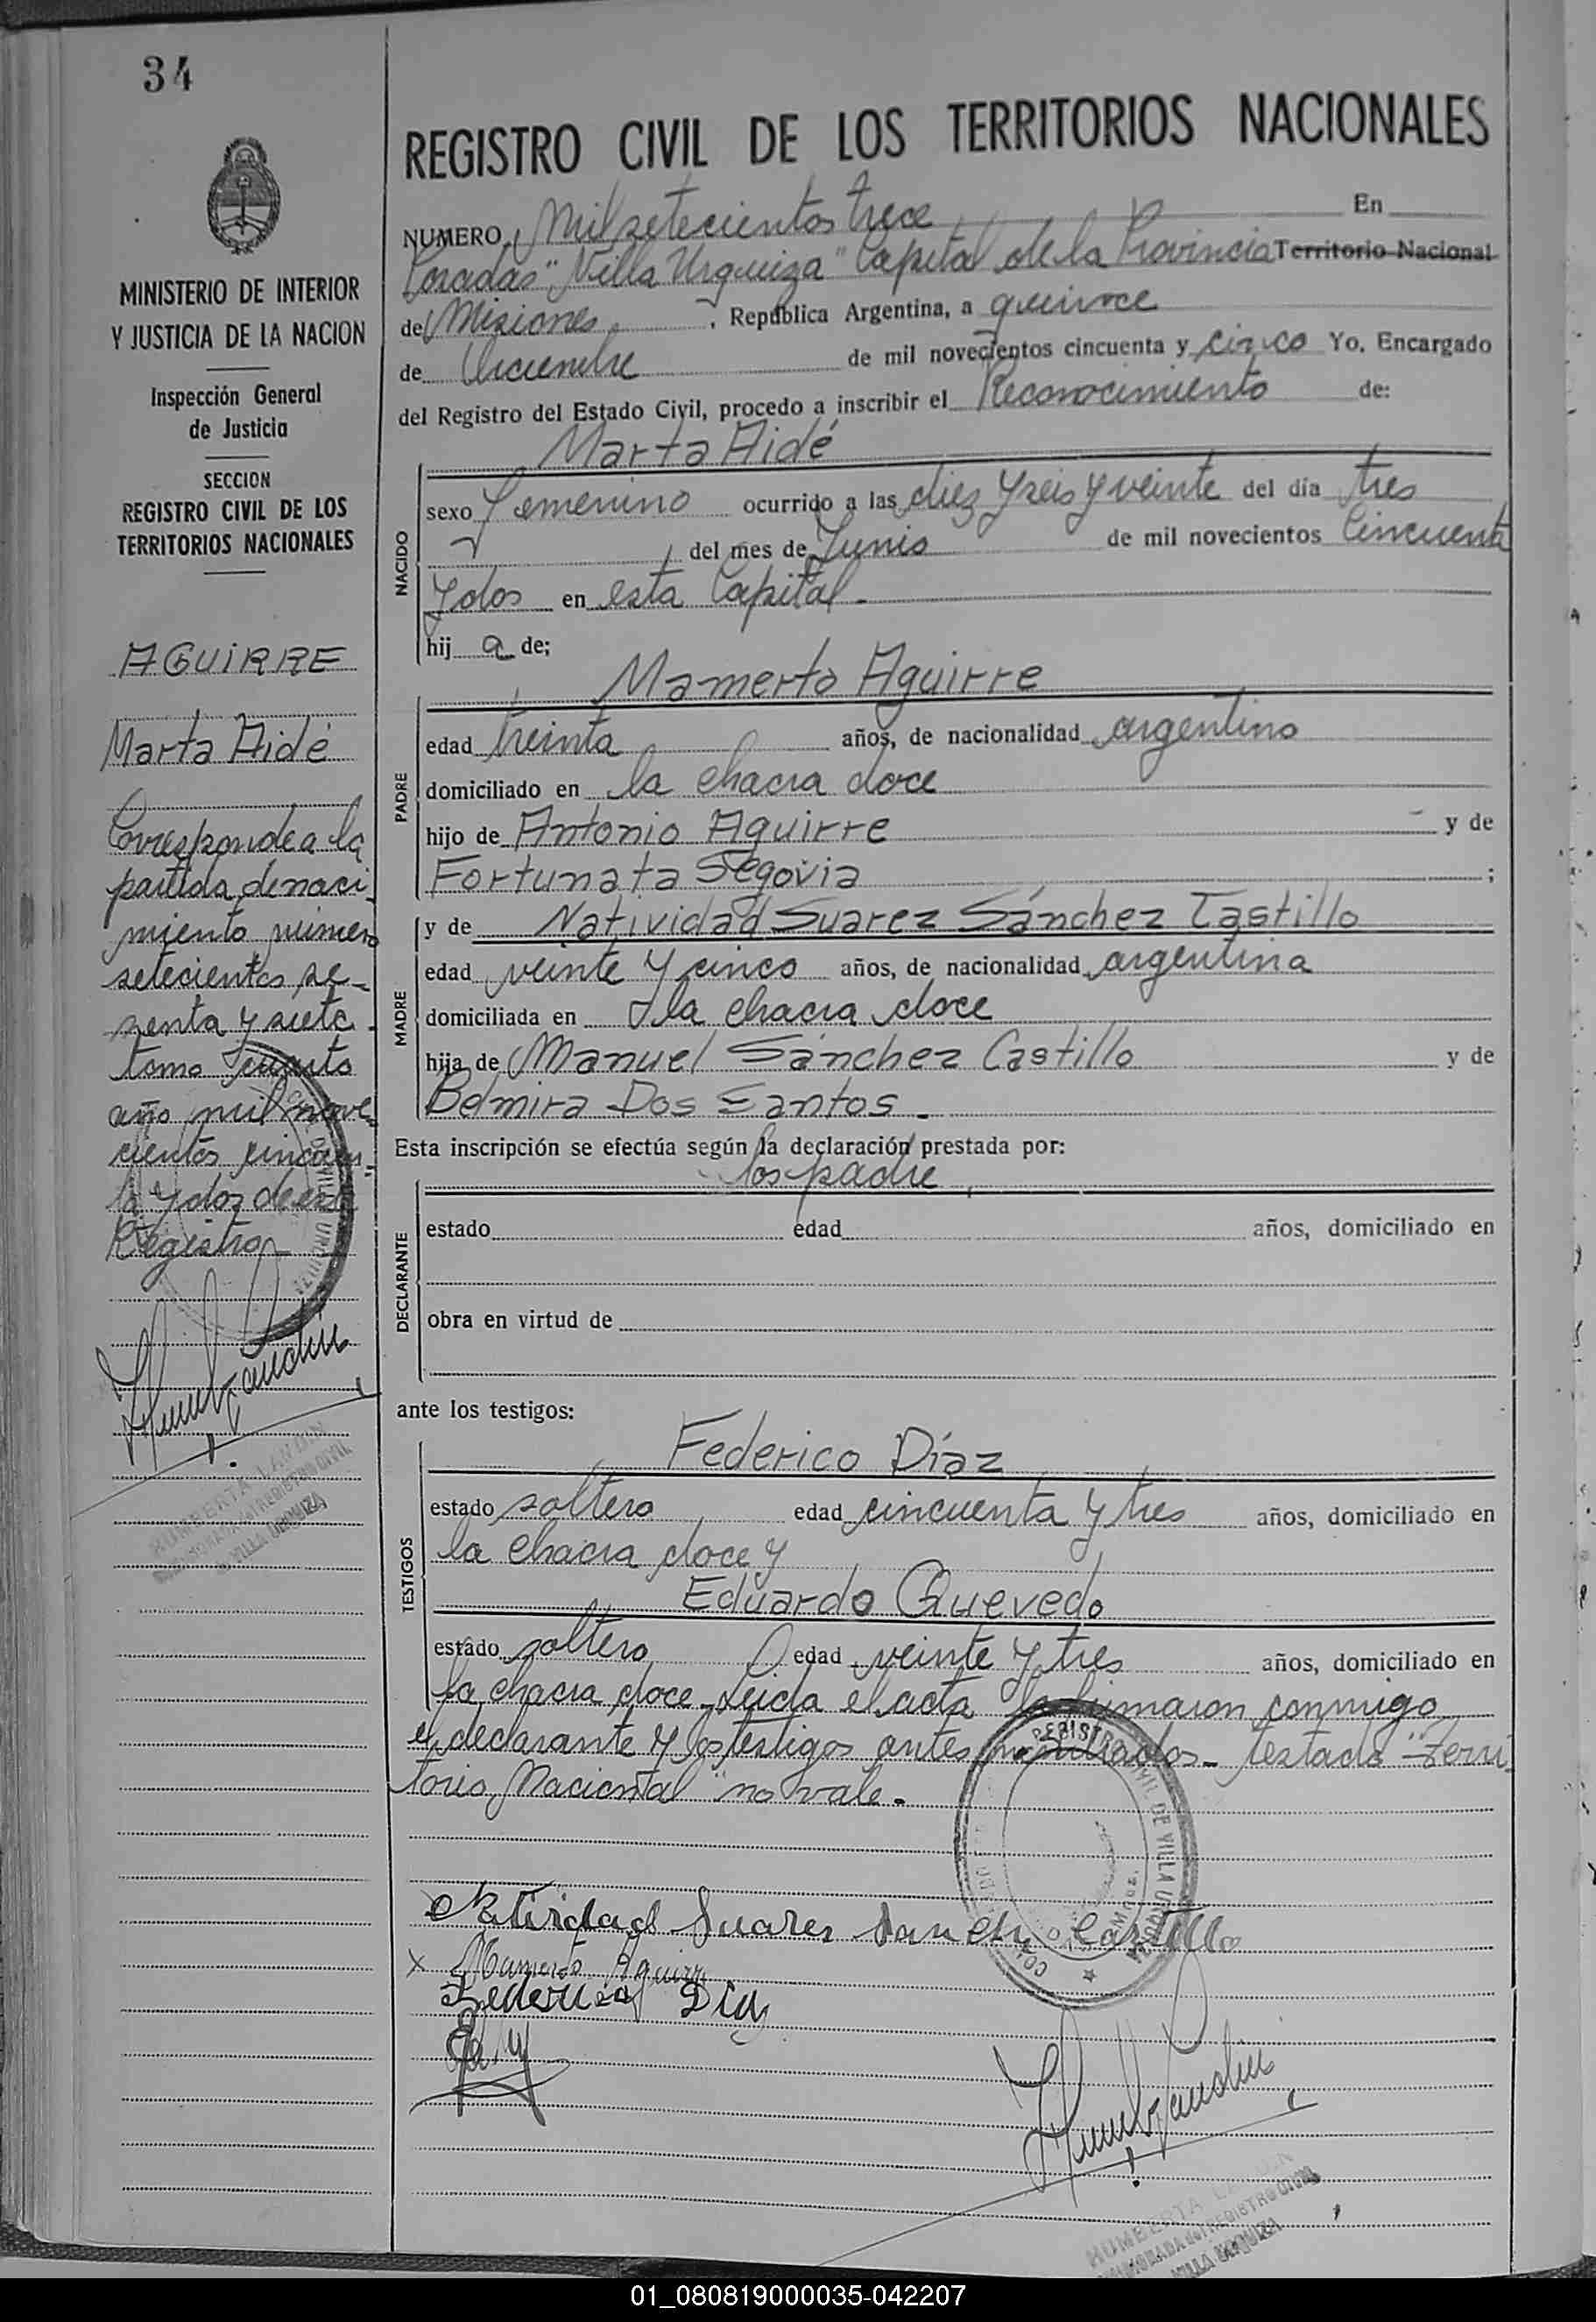 34
MINISTERIO DE INTERIOR
Y JUSTICIA DE LA NACION
Inspección General
de Justicia
SECCION
REGISTRO CIVIL DE LOS
TERRITORIOS NACIONALES
AGUIRRE
Marta Aidé
Corresponde a la
partida de naci-
miento número
setecientos se-
senta y siete
tomo cuarto
año mil nove-
cientos cincuen-
ta y dos de este
Registro
REGISTRO CIVIL DE LOS TERRITORIOS NACIONALES
NUMERO Mil setecientos trece En
Posadas "Villa Urquiza" Capital de la Provincia Territorio Nacional
de Misiones, República Argentina, a quince
de Diciembre de mil novecientos cincuenta y cinco Yo, Encargado
del Registro del Estado Civil, procedo a inscribir el Reconocimiento de:
NACIDO
Marta Aidé
sexo Femenino ocurrido a las diez y seis y veinte del día tres
del mes de Junio de mil novecientos Cincuenta
y dos en esta Capital.
hij a de;
PADRE
Mamerto Aguirre
edad treinta años, de nacionalidad argentino
domiciliado en la chacra doce
hijo de Antonio Aguirre y de
Fortunata Segovia ;
MADRE
y de Natividad Suarez Sánchez Castillo
edad veinte y cinco años, de nacionalidad argentina
domiciliada en la chacra doce
hija de Manuel Sánchez Castillo y de
Belmira Dos Santos.
Esta inscripción se efectúa según la declaración prestada por:
DECLARANTE
los padre
estado edad años, domiciliado en
obra en virtud de
ante los testigos:
TESTIGOS
Federico Díaz
estado soltero edad cincuenta y tres años, domiciliado en
la chacra doce y
Eduardo Quevedo
estado soltero edad veinte y tres años, domiciliado en
la chacra doce. Leida el acta la firmaron conmigo
el declarante y los testigos antes nombrados. testado "Terri-
torio Nacional" no vale.
Natividad Suares Sanche Castillo
x Mamerto Aguirre
Federico Diaz
HUMBERTA LANDIN
VILLA URQUIZA
01_080819000035-042207